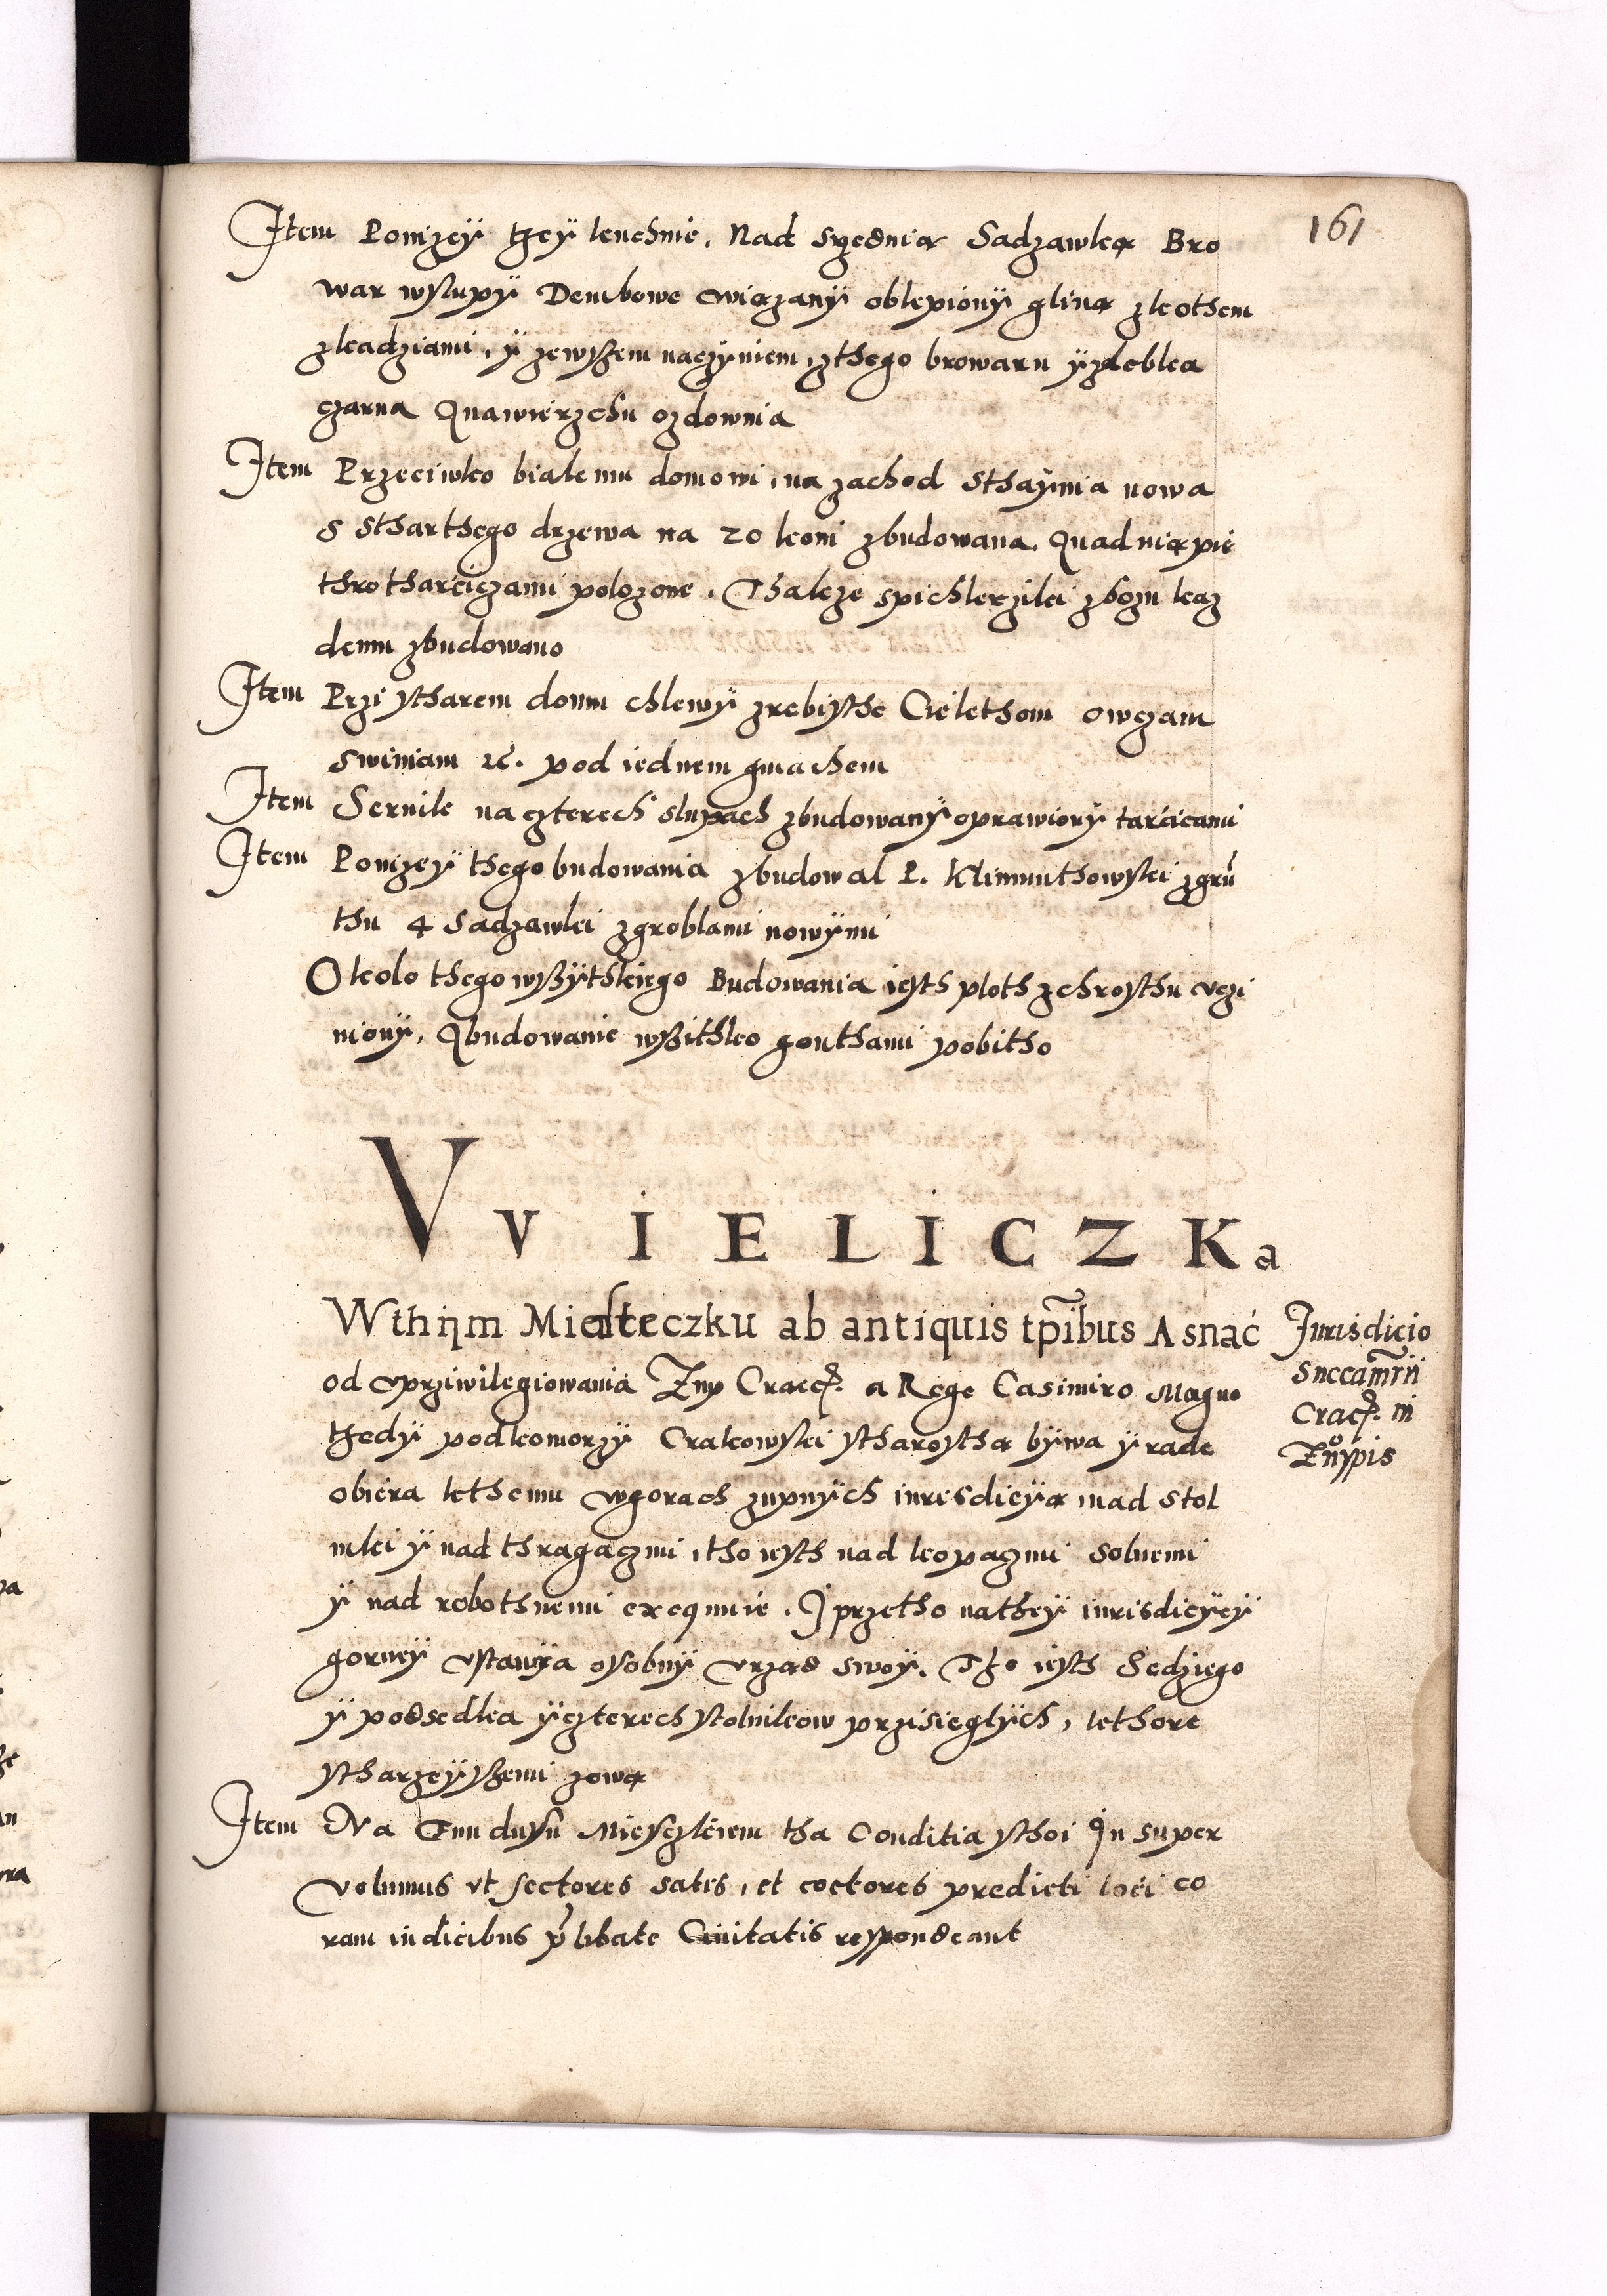 161
Item Ponizey tzey kuchnie, Nad Srzednią Sadzawką Bro
war wslupy Dembowe wiązany oblepiony gliną zkothem
zkadziami, y zewszem naczyniem, zthego browaru yzdebka
czarna Ynawierzchu ozdownia
Item Przeciwko bialemu domowi, na zachod Sthaynia nowa
s stharthego drzewa na 20 koni zbudowana. Ynad nią pie
thro tharciczami polozone. Thakze spichlerzikci zbozu kaz
demu zbudowano
Item Przi stharem domu chlewy zrebisthe Cielethom owczam
swiniam etc. pod iednem gmachem
Item Sernik na czterech slupach zbudowany oprawiony tarcicami
Item Ponizey thego budowania zbudowal P. Klimunthowski zgrū
thu 4 Sadzawki zgroblami nowymi
Okolo thego wszythkiego Budowania iesth ploth zchrosthu vczi
niony, Ybudowanie wszithko gonthami pobitho
VVIELICZKa
Wthym Miesteczku ab antiquis tp̃ibus A snać
od vprziwilegiowania Zup Cracꝭ. a Rege Casimiro Magno
tzedy podkomorzy Crakowski stharosthą bywa y rade
obiera kthemu wgorach zupnych iurisdicyą nad Stol
niki y nad thragaczmi, tho iesth nad kopaczmi Solnemi
y nad robothnemi exequuie. I przetho nathey iurisdicyey
gorney vstawia osobny vrząd swoy. Tho iesth Sedziego
y podsedka yczterech stolnikow przisieglych, kthore
stharzeyszemi zową
Jurisdicio
Succam̃rii
Cracꝭ. in
Zuppis
Item Na fundusu Miesczkiem tha Conditia sthoi Insuper
volumus vt sectores salis, et coctores predicti loci co
ram iudicibus p̄libate Ciuitatis respondeant